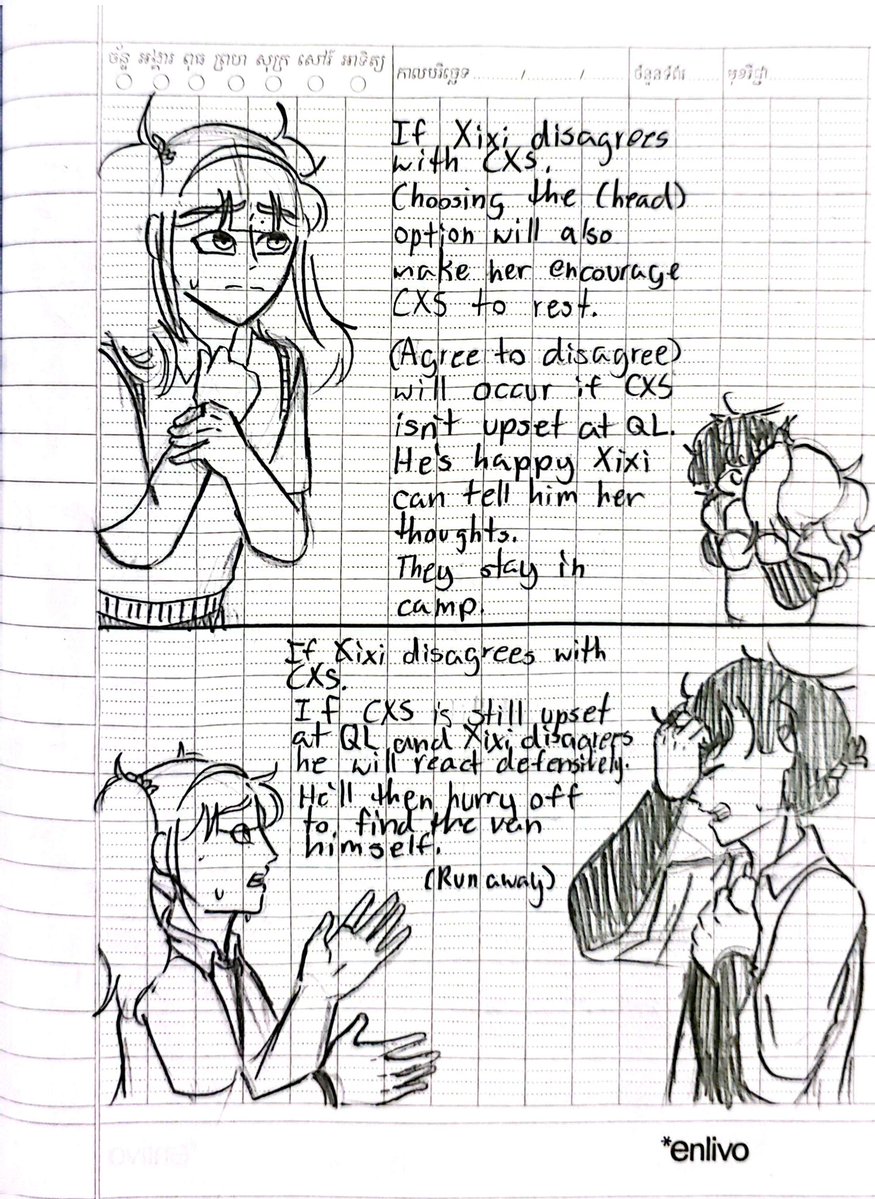 ច័ន្ទ អង្គារ ពុធ ព្រហ សុក្រ សៅរ៍ អាទិត្យ
កាលបរិច្ឆេទ ............ / ............ / ............
ចំនួនទំព័រ
មុខវិជ្ជា
If Xixi disagrees
with CXS.
Choosing the (head)
option will also
make her encourage
CXS to rest.
(Agree to disagree)
will occur if CXS
isn't upset at QL.
He's happy Xixi
can tell him her
thoughts.
They stay in
camp.
If Xixi disagrees with
CXS.
If CXS is still upset
at QL and Xixi disagrers
he will react defensitely.
He'll then hurry off
to find the van
himself.
(Run away)
*enlivo